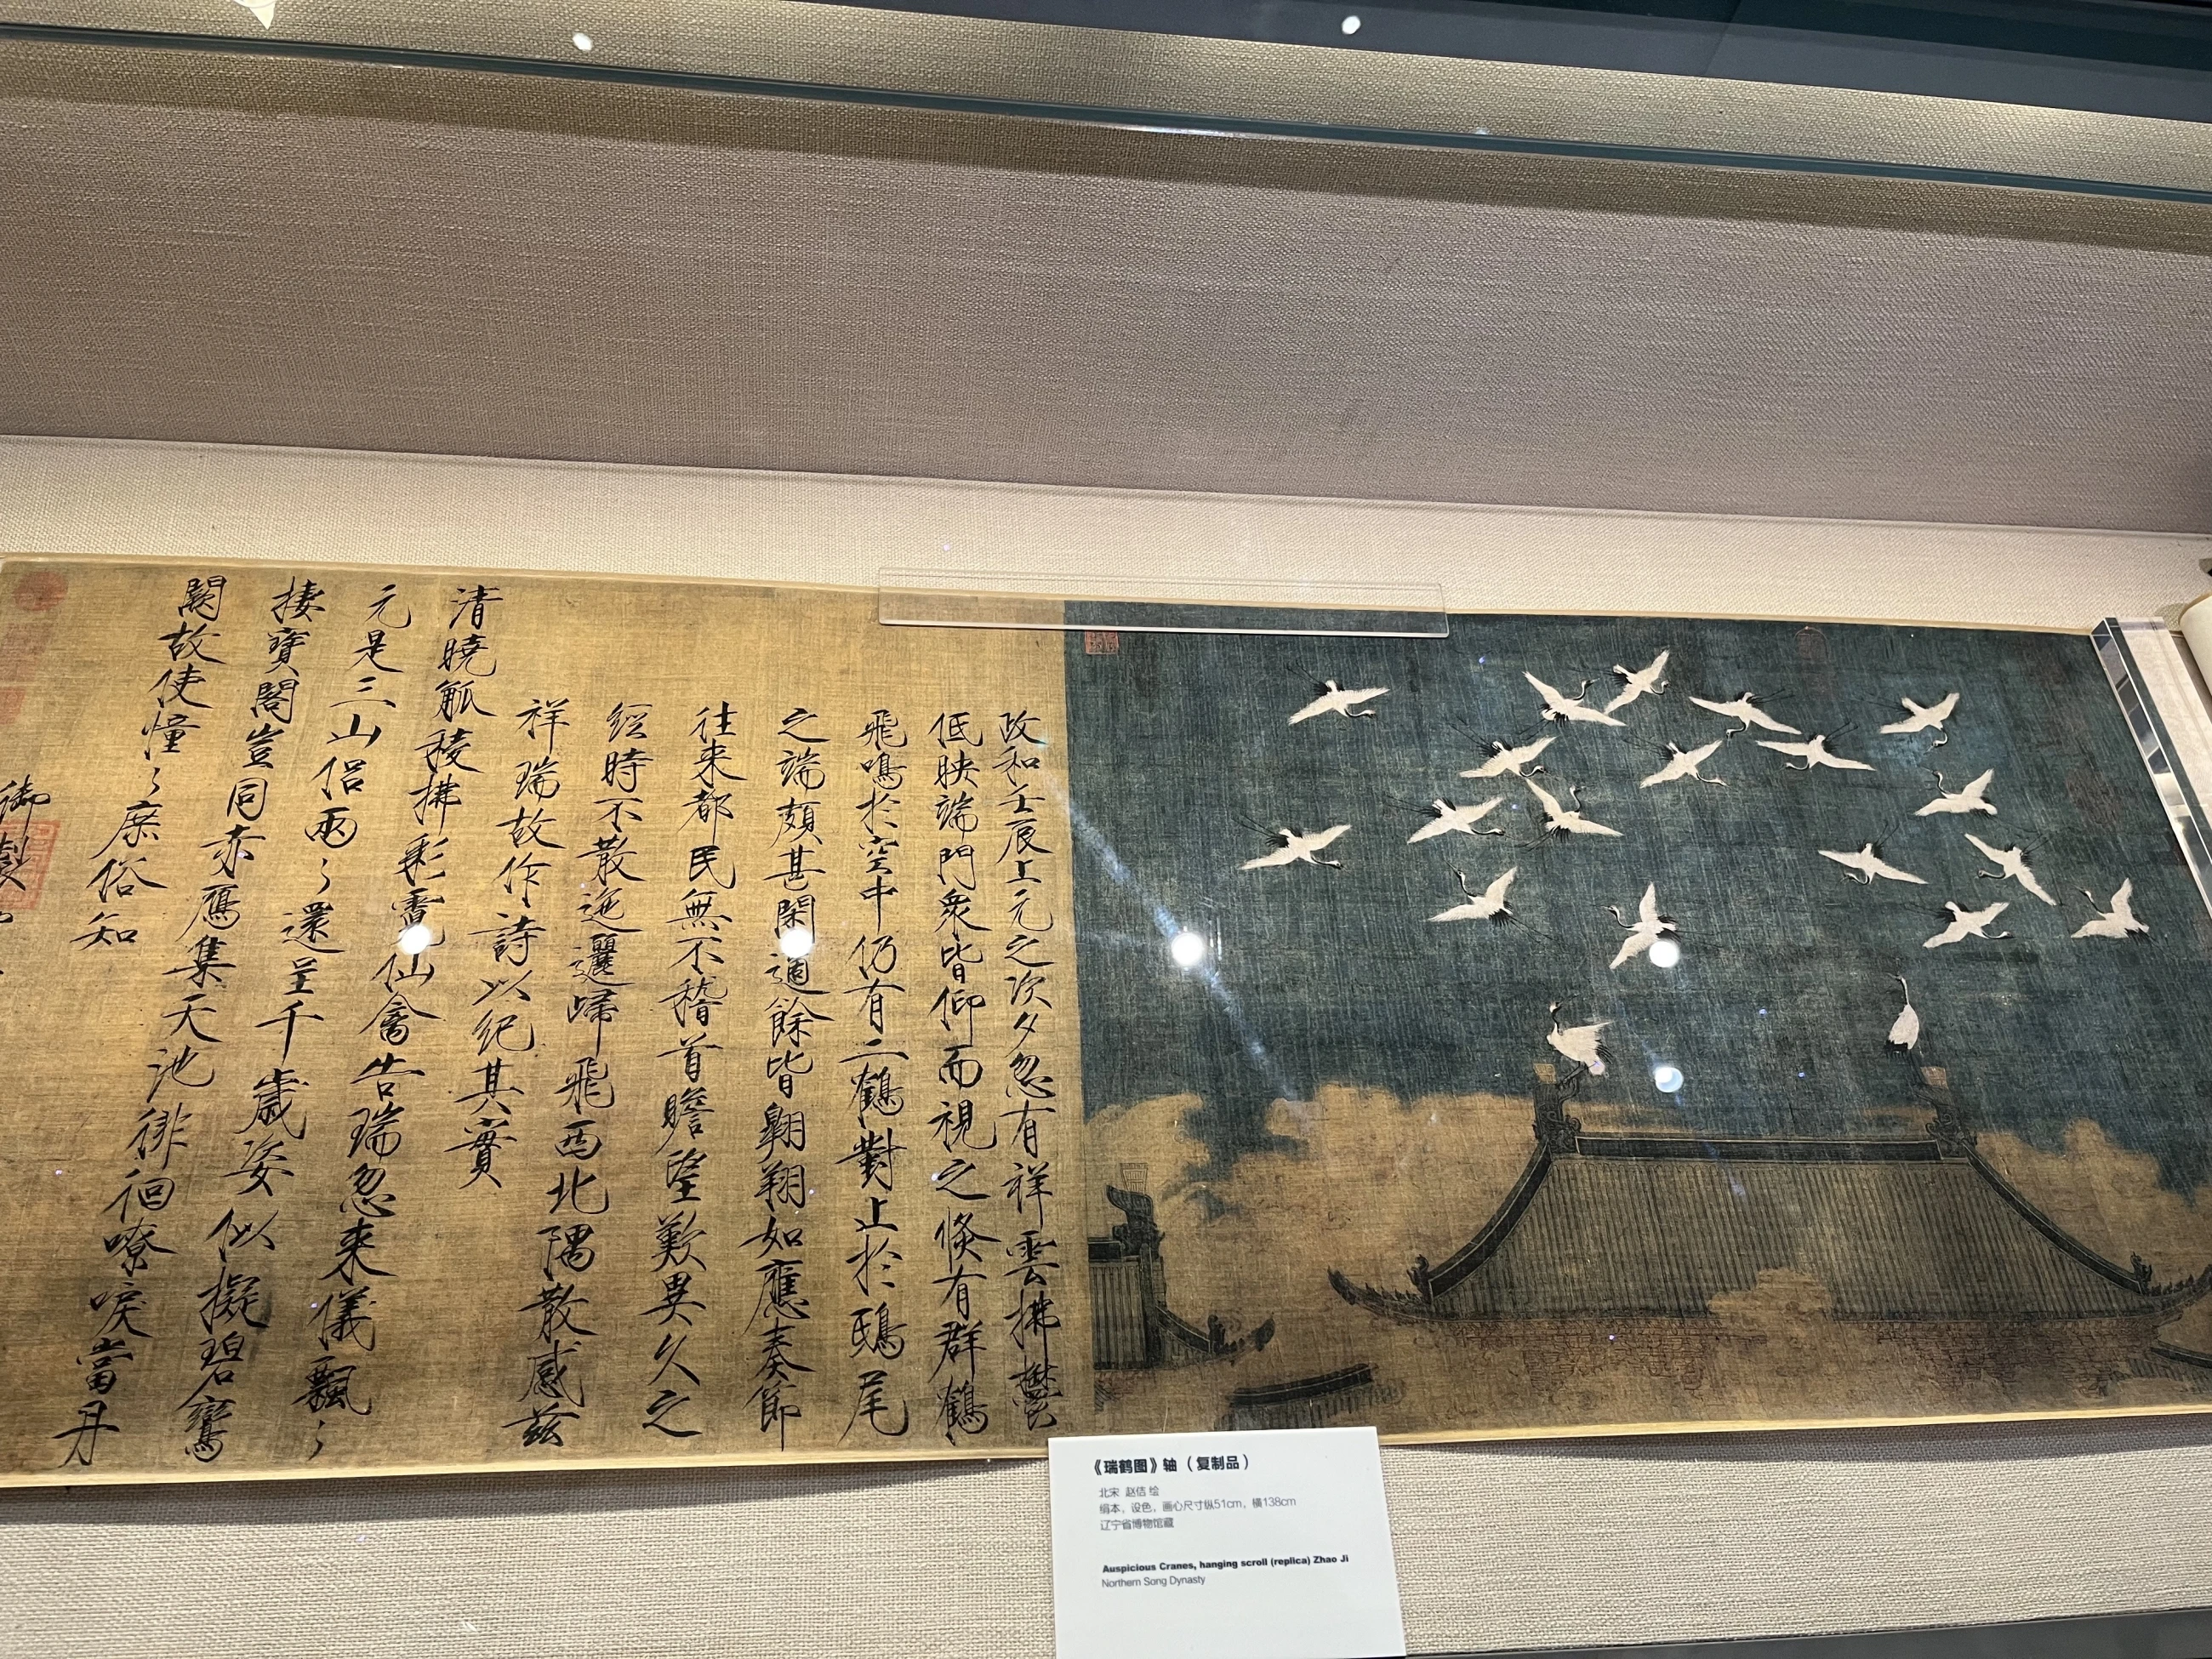 政和壬辰上元之次夕忽有祥雲拂鬱
低映端門衆皆仰而視之倏有群鶴
飛鳴於空中仍有二鶴對止於鴟尾
之端頗甚閑適餘皆翱翔如應奏節
往来都民無不稽首瞻望歎異久之
經時不散迤邐歸飛西北隅散感茲
祥瑞故作詩以紀其實
清曉觚稜拂彩霓仙禽告瑞忽来儀飄々
元是三山侶兩々還呈千歲姿似擬碧鸞
捿寶閣豈同赤鴈集天池徘徊嘹唳當丹
闕故使憧々庶俗知
御製
《瑞鹤图》轴（复制品）
北宋 赵佶 绘
绢本，设色，画心尺寸纵51cm，横138cm
辽宁省博物馆藏
Auspicious Cranes, hanging scroll (replica) Zhao Ji
Northern Song Dynasty